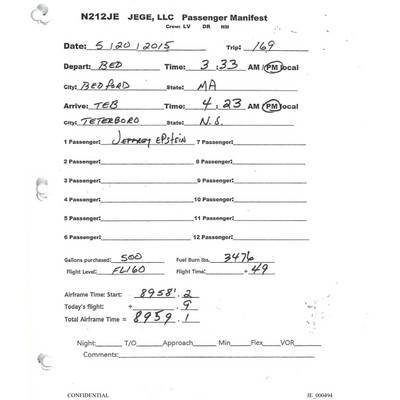 N212JE JEGE, LLC Passenger Manifest
Crew: LV DR NM
Date: 5/20/2015 Trip: 169
Depart: BED Time: 3:33 AM/PM local
City: BEDFORD State: MA
Arrive: TEB Time: 4:23 AM/PM local
City: TETERBORO State: N.J.
1 Passenger: Jeffrey EPstein 7 Passenger:
2 Passenger: 8 Passenger:
3 Passenger: 9 Passenger:
4 Passenger: 10 Passenger:
5 Passenger: 11 Passenger:
6 Passenger: 12 Passenger:
Gallons purchased: 500 Fuel Burn lbs. 3476
Flight Level: FL160 Flight Time: + 49
Airframe Time: Start: 8958.2
Today's flight: + .9
Total Airframe Time = 8959.1
Night: T/O Approach Min Flex VOR
Comments:
CONFIDENTIAL JE_000494